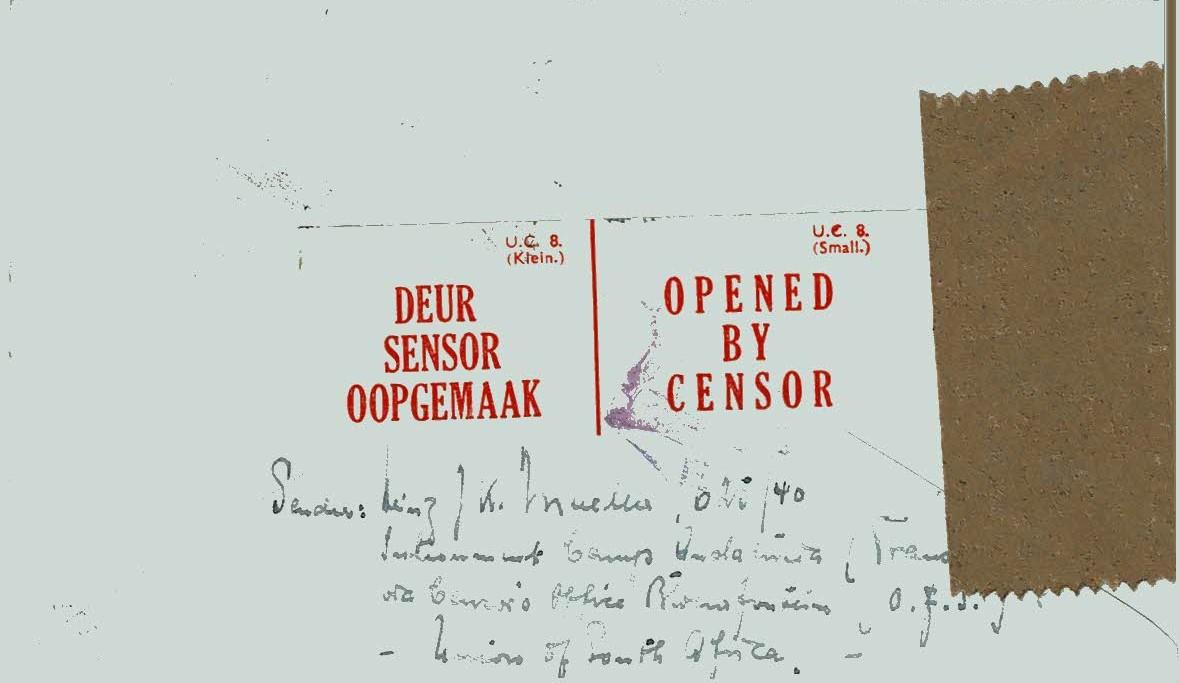 U.C. 8.
(Klein.)
DEUR
SENSOR
OOPGEMAAK
U.C. 8.
(Small.)
OPENED
BY
CENSOR
Sender: Heinz J K. Mueller, /40
Internment Camp Andalusia (
via Censor's Office Bloemfontein O.F.S.
- Union of South Africa. -